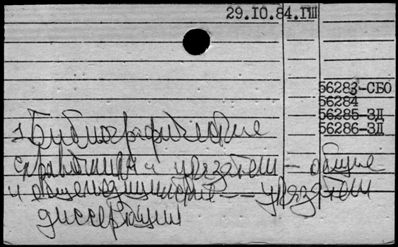 29.10.84.ГПШ
56283-СБО
56284
56285-ЗД
56286-ЗД
Библиографические
справочники и указатели - общие
и общемедицинские -- указатели
диссертации